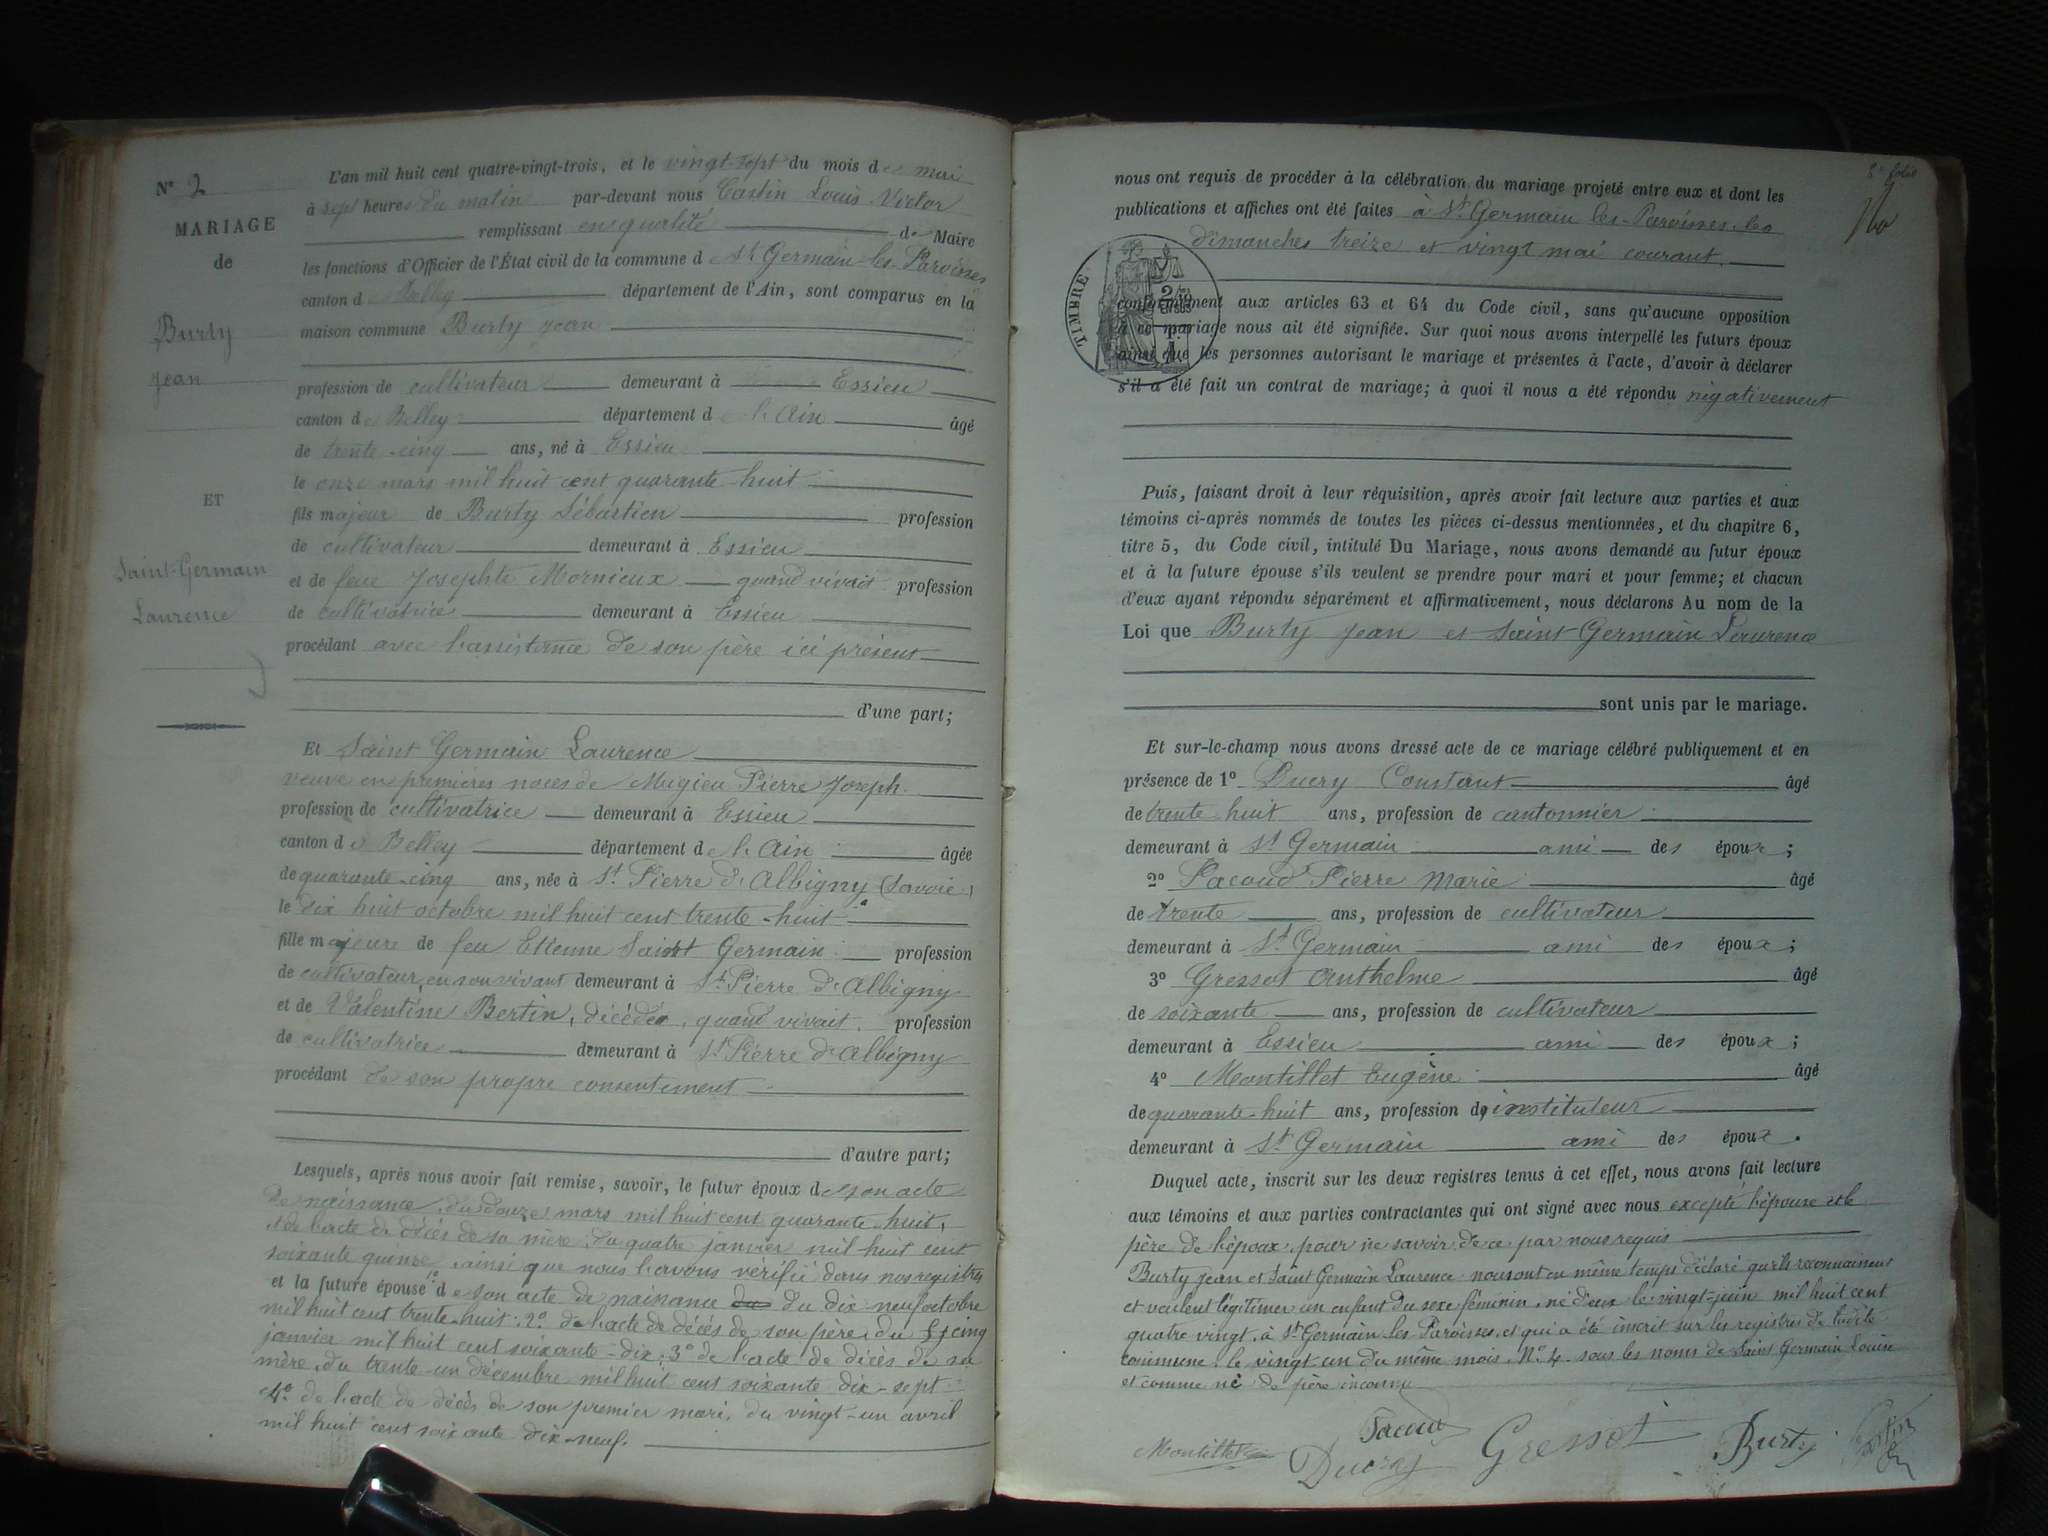 N° 2
MARIAGE
de
Burty
Jean
ET
Saint-Germain
Laurence
L'an mil huit cent quatre-vingt-trois, et le vingt-sept du mois de mai
à sept heures du matin par-devant nous Castin Louis Victor
remplissant en qualité de Maire
les fonctions d'Officier de l'État civil de la commune d St Germain-les-Paroisses
canton de Belley département de l'Ain, sont comparus en la
maison commune Burty Jean
profession de cultivateur demeurant à Essieu
canton de Belley département de l'Ain âgé
de trente-cinq ans, né à Essieu
le onze mars mil huit cent quarante-huit
fils majeur de Burty Sébastien profession
de cultivateur demeurant à Essieu
et de feue Josephte Mornieux quand vivait profession
de cultivatrice demeurant à Essieu
procédant avec l'assistance de son père ici présent
d'une part;
Et Saint Germain Laurence
veuve en premières noces de Mugieu Pierre Joseph
profession de cultivatrice demeurant à Essieu
canton de Belley département de l'Ain âgée
de quarante-cinq ans, née à St Pierre d'Albigny (Savoie)
le dix huit octobre mil huit cent trente-huit
fille majeure de feu Etienne Saint Germain profession
de cultivateur en son vivant demeurant à St Pierre d'Albigny
et de Valentine Bertin, décédée, quand vivait, profession
de cultivatrice demeurant à St Pierre d'Albigny
procédant de son propre consentement
d'autre part;
Lesquels, après nous avoir fait remise, savoir, le futur époux de son acte
de naissance, du douze mars mil huit cent quarante-huit,
de l'acte de décès de sa mère, du quatre janvier mil huit cent
soixante quinze, ainsi que nous l'avons vérifié dans nos registres
et la future épouse 1° de son acte de naissance du dix-neuf octobre
mil huit cent trente-huit; 2° de l'acte de décès de son père, du cinq
janvier mil huit cent soixante-dix; 3° de l'acte de décès de sa
mère, du trente-un décembre mil huit cent soixante dix-sept
4° de l'acte de décès de son premier mari, du vingt-un avril
mil huit cent soixante dix-neuf.
8e folio
nous ont requis de procéder à la célébration du mariage projeté entre eux et dont les
publications et affiches ont été faites à St Germain les-Paroisses, les
dimanches treize et vingt mai courant.
TIMBRE
conformément aux articles 63 et 64 du Code civil, sans qu'aucune opposition
à ce mariage nous ait été signifiée. Sur quoi nous avons interpellé les futurs époux
ainsi que les personnes autorisant le mariage et présentes à l'acte, d'avoir à déclarer
s'il a été fait un contrat de mariage; à quoi il nous a été répondu négativement
Puis, faisant droit à leur réquisition, après avoir fait lecture aux parties et aux
témoins ci-après nommés de toutes les pièces ci-dessus mentionnées, et du chapitre 6,
titre 5, du Code civil, intitulé Du Mariage, nous avons demandé au futur époux
et à la future épouse s'ils veulent se prendre pour mari et pour femme; et chacun
d'eux ayant répondu séparément et affirmativement, nous déclarons Au nom de la
Loi que Burty Jean et Saint Germain Laurence
sont unis par le mariage.
Et sur-le-champ nous avons dressé acte de ce mariage célébré publiquement et en
présence de 1° Ducry Constant âgé
de trente huit ans, profession de cantonnier
demeurant à St Germain ami des époux;
2° Pacoud Pierre Marie âgé
de trente ans, profession de cultivateur
demeurant à St Germain ami des époux;
3° Gressot Anthelme âgé
de soixante ans, profession de cultivateur
demeurant à Essieu ami des époux;
4° Montillet Eugène âgé
de quarante-huit ans, profession d'instituteur
demeurant à St Germain ami des époux.
Duquel acte, inscrit sur les deux registres tenus à cet effet, nous avons fait lecture
aux témoins et aux parties contractantes qui ont signé avec nous excepté l'épouse et le
père de l'époux, pour ne savoir, de ce par nous requis
Burty Jean et Saint Germain Laurence nous ont en même temps déclaré qu'ils reconnaissent
et veulent légitimer un enfant du sexe féminin, né d'eux le vingt-juin mil huit cent
quatre vingt, à St Germain les Paroisses, et qui a été inscrit sur les registres de ladite
commune, le vingt un du même mois, N° 4, sous les noms de Saint Germain Louise
et comme né de père inconnu
Montillet Pacoud Ducry Gressot Burty Castin